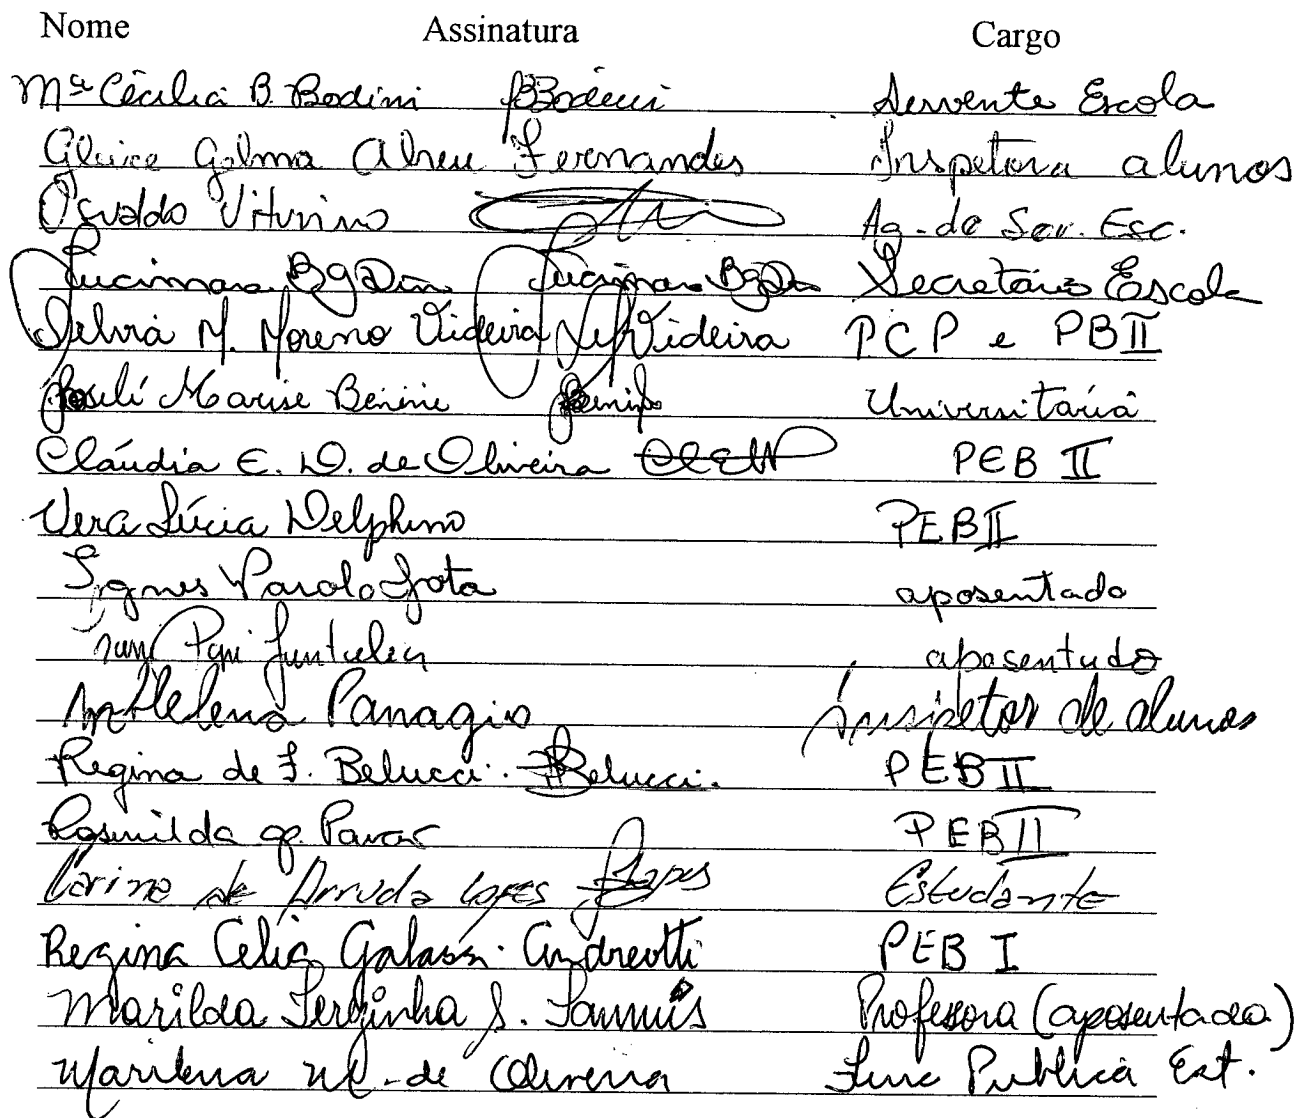 Nome Assinatura Cargo
Mª Cecilia B. Bodini BBodini Servente Escola
Gleice Gelma Abreu Fernandes Inspetora alunos
Osvaldo Viturino Ag. de Ser. Esc.
Lucimara Lucimara Secretário Escola
Silvia M. Moreno Videira Videira PCP e PBII
Roseli Marise Benini Benini Universitária
Cláudia E. D. de Oliveira PEB II
Vera Lúcia Delphino PEB II
Ignes Parolo aposentado
aposentado
Mª Helena Panagio Inspetor de alunos
Regina de F. Belucci. Belucci. PEB II
Rosenilda ap. PEB II
Carina de Arruda Lopes Lopes Estudante
Regina Celia Galassi Andreotti PEB I
Marilda Terezinha S. Professora (aposentada)
Marilena M. de Oliveira Func Publica Est.